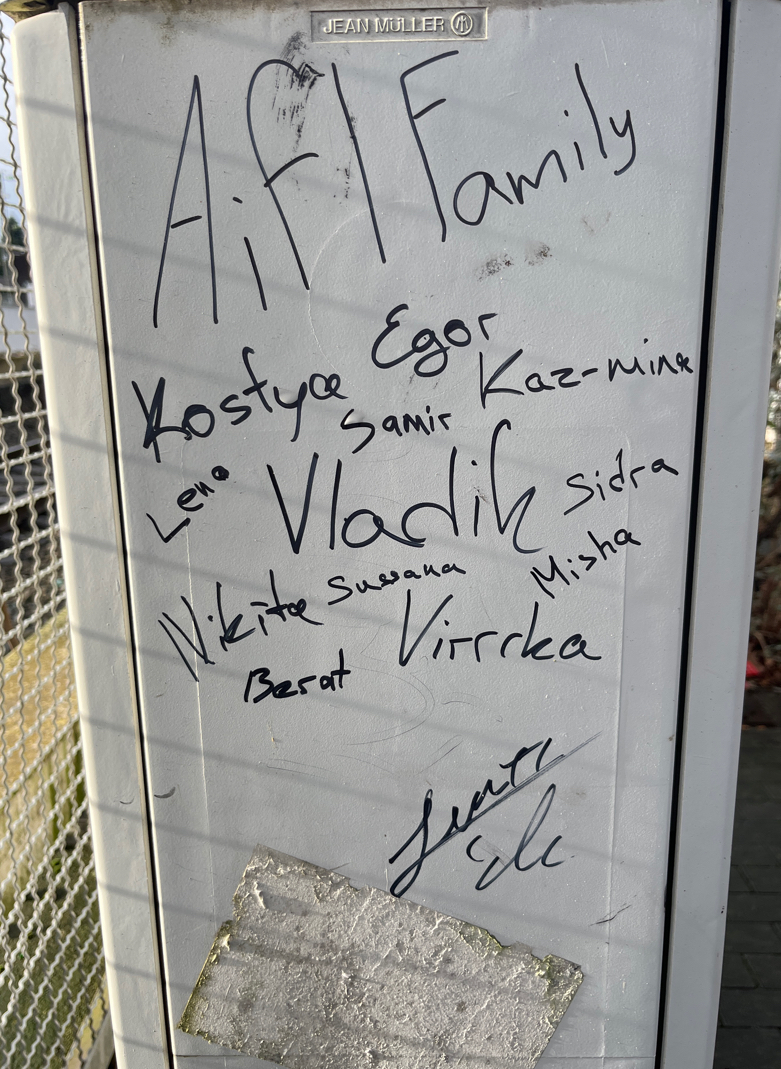 JEAN MÜLLER
Aifl Family
Egor
Kostya Kaz-mina
Samir
Lena Vladik Sidra
Misha
Nikita Sussana
Virrrka
Berat